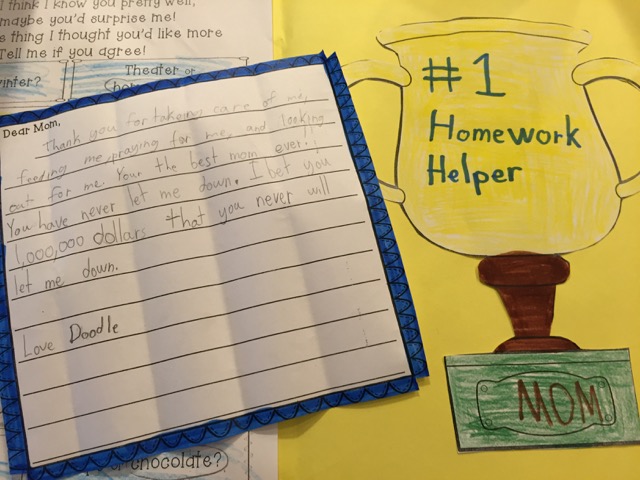 I think I know you pretty well,
maybe you'd surprise me!
e thing I thought you'd like more
Tell me if you agree!
winter?
Theater or
Dear Mom,
Thank you for takeing care of me,
feeding me, praying for me, and looking
out for me. Your the best mom ever!
You have never let me down. I bet you
1,000,000 dollars that you never will
let me down.
Love Doodle
chocolate?
#1
Homework
Helper
MOM